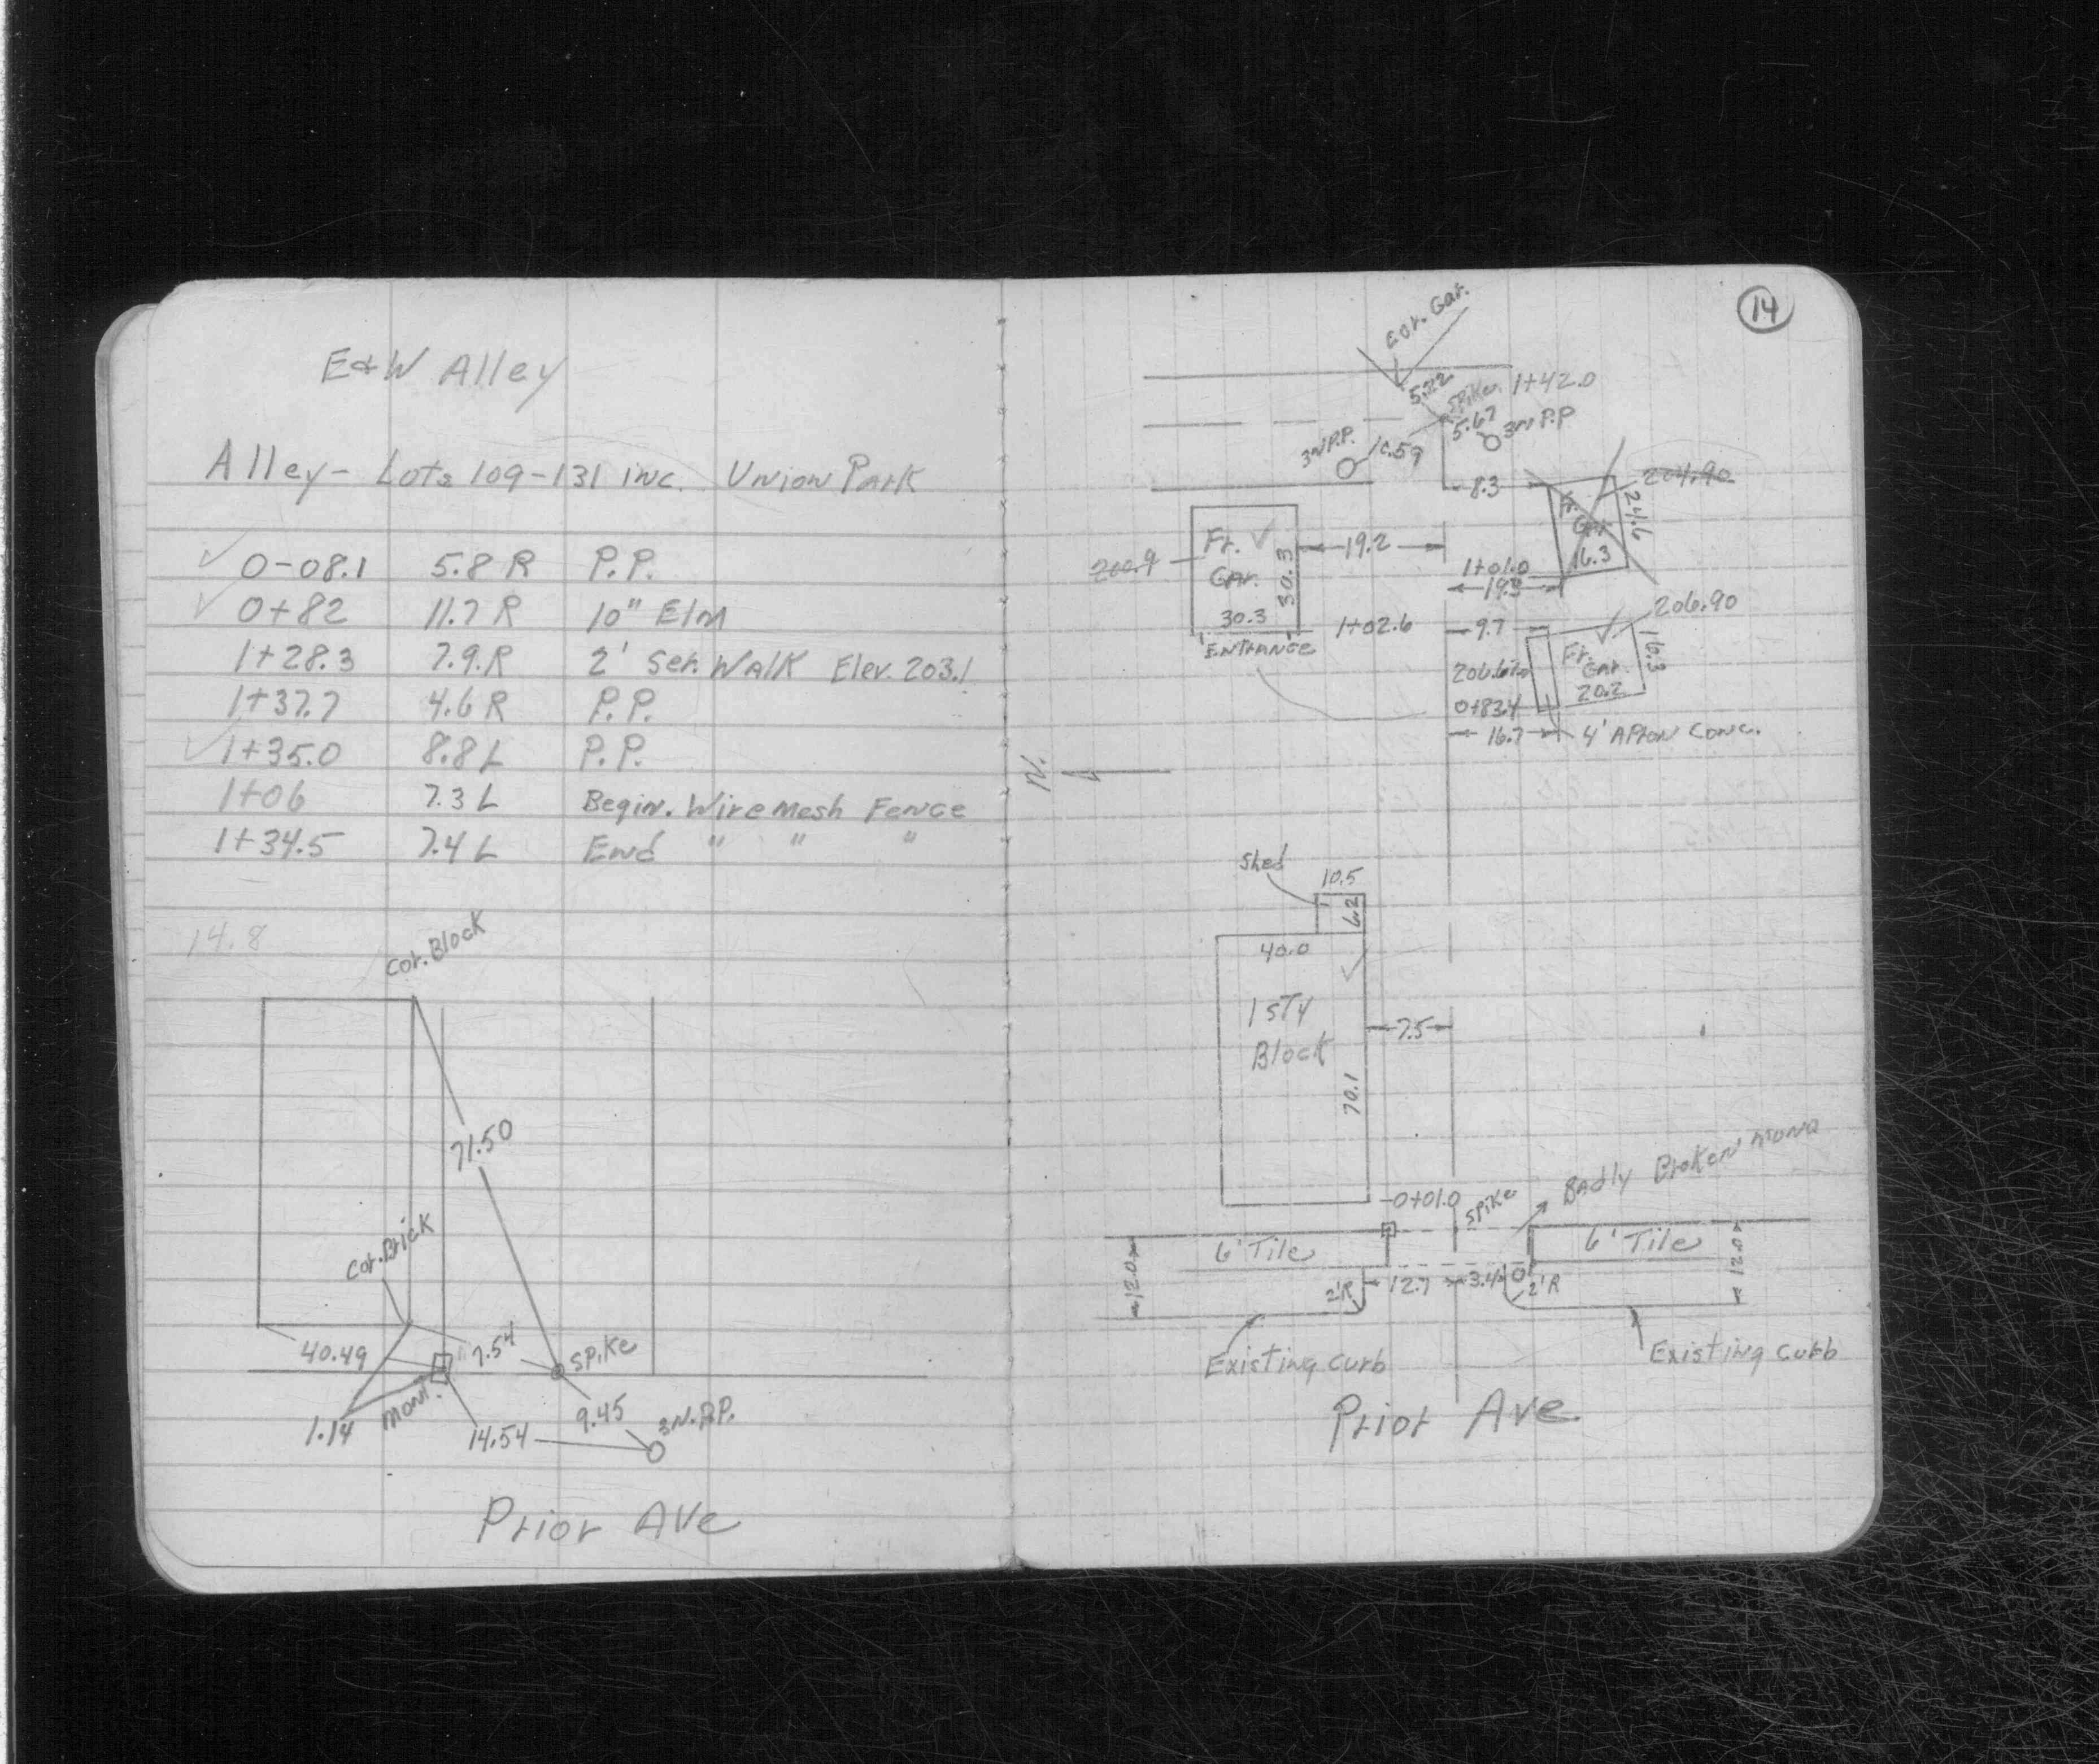 E & W Alley
Alley - Lots 109-131 inc. Union Park
✓ 0-08.1 5.8 R P.P.
✓ 0+82 11.7 R 10" Elm
1+28.3 7.9 R 2' Ser. Walk Elev. 203.1
1+37.7 4.6 R P.P.
✓ 1+35.0 8.8 L P.P.
1+06 7.3 L Begin. Wire Mesh Fence
1+34.5 7.4 L End " " "
14.8
Cor. Block
71.50
Cor. Brick
40.49
7.54
Spike
1.14
Mon.
14.54
9.45
3N. P.P.
Prior Ave
14
Cor. Gar.
Spike 1+42.0
5.67
3N P.P
3N P.P.
8.3
204.90
Fr. Gar.
24.6
16.3
Fr. ✓
Gar.
30.3
30.3
200.9
19.2
1+01.0
19.3
Entrance
1+02.6
9.7
206.90
✓
Fr. Gar.
20.2
16.3
0+83.4
16.7
4' Apron Conc.
N.
Shed
10.5
6.2
40.0
✓
1 Sty
Block
7.5
70.1
0+01.0
Spike
Badly Broken Mono
6' Tile
6' Tile
12.0
12.0
2'R
12.7
3.4
2'R
Existing Curb
Existing Curb
Prior Ave.